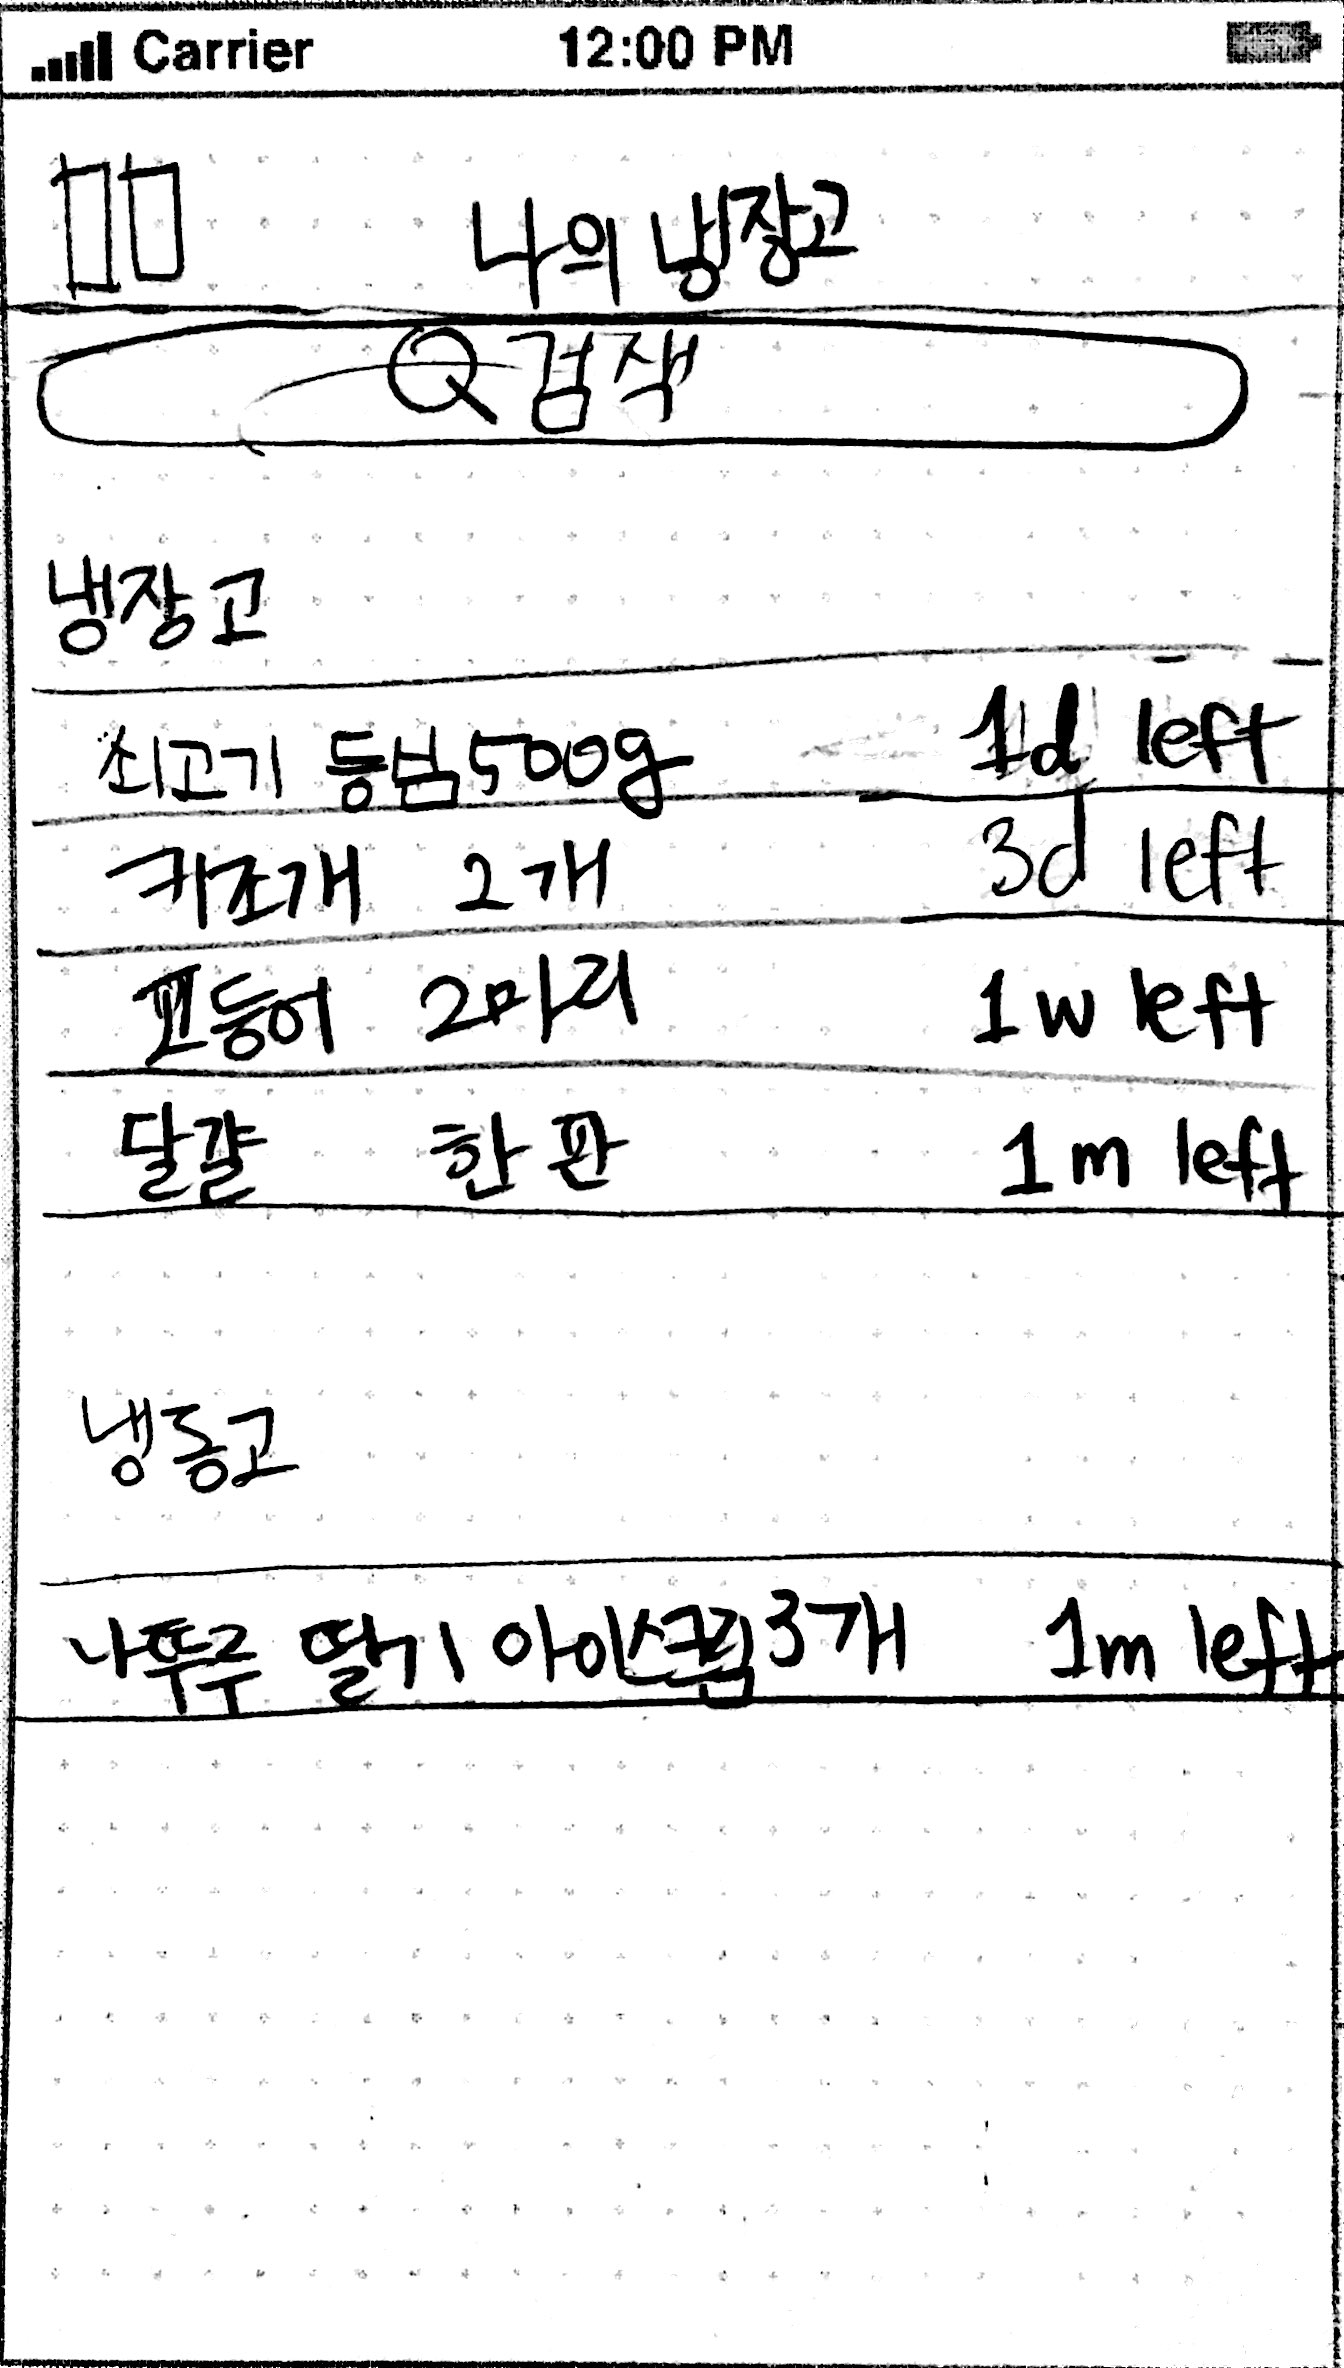 Carrier 12:00 PM
나의 냉장고
검색
냉장고
쇠고기 등심 500g 1d left
키조개 2개 3d left
고등어 2마리 1w left
달걀 한 판 1m left
냉동고
나뚜루 딸기 아이스크림 3개 1m left